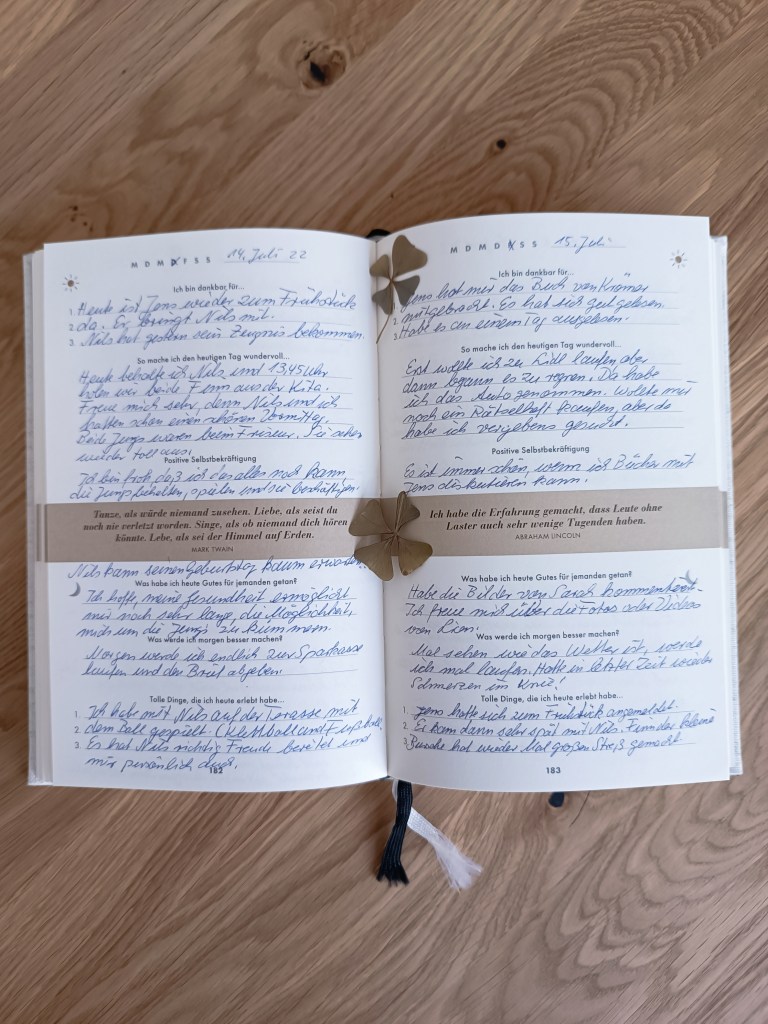 M D M D F S S 14. Juli 22
Ich bin dankbar für...
1. Heute ist Jens wieder zum Frühstück
2. da. Er bringt Nils mit.
3. Nils hat gestern sein Zeugnis bekommen.
So mache ich den heutigen Tag wundervoll...
Heute behalte ich Nils und 13,45 Uhr
holen wir beide Finn aus der Kita.
Freue mich sehr, denn Nils und ich
hatten schon einen schönen Vormittag.
Beide Jungs waren beim Friseur. Sie sehen
wieder toll aus.
Positive Selbstbekräftigung
Ich bin froh, daß ich das alles noch kann
die Jungs behalten, spielen und sie beschäftigen.
Tanze, als würde niemand zusehen. Liebe, als seist du
noch nie verletzt worden. Singe, als ob niemand dich hören
könnte. Lebe, als sei der Himmel auf Erden.
MARK TWAIN
Nils kann seinen Geburtstag kaum erwarten.
Was habe ich heute Gutes für jemanden getan?
Ich hoffe, meine Gesundheit ermöglicht
mir noch sehr lange, die Möglichkeit,
mich um die Jungs zu kümmern.
Was werde ich morgen besser machen?
Morgen werde ich endlich zur Sparkasse
laufen und der Brief abgeben.
Tolle Dinge, die ich heute erlebt habe...
1. Ich habe mit Nils auf der Terasse mit
2. dem Ball gespielt. (Klettball und Fußball)
3. Es hat Nils richtig Freude bereitet und
mir persönlich auch.
182
M D M D F S S 15. Juli
Ich bin dankbar für...
Jens hat mir das Buch von Krämer
2. mitgebracht. Es hat sich gut gelesen.
Habe es an einem Tag ausgelesen.
So mache ich den heutigen Tag wundervoll...
Erst wollte ich zu Lidl laufen aber
dann begann es zu regnen. Da habe
ich das Auto genommen. Wollte mir
noch ein Rätselheft kaufen, aber da
habe ich vergebens gesucht.
Positive Selbstbekräftigung
Es ist immer schön, wenn ich Bücher mit
Jens diskutieren kann.
Ich habe die Erfahrung gemacht, dass Leute ohne
Laster auch sehr wenige Tugenden haben.
ABRAHAM LINCOLN
Was habe ich heute Gutes für jemanden getan?
Habe die Bilder von Sarah kommentiert.
Ich freue mich über die Fotos oder Videos
von Lien.
Was werde ich morgen besser machen?
Mal sehen wie das Wetter ist, werde
ich mal laufen. Hatte in letzter Zeit wieder
Schmerzen im Knie!
Tolle Dinge, die ich heute erlebt habe...
1. Jens hatte sich zum Frühstück angemeldet.
2. Er kam dann sehr spät mit Nils. Finn der kleine
3. Bursche hat wieder Mal großen Streß gemacht.
183